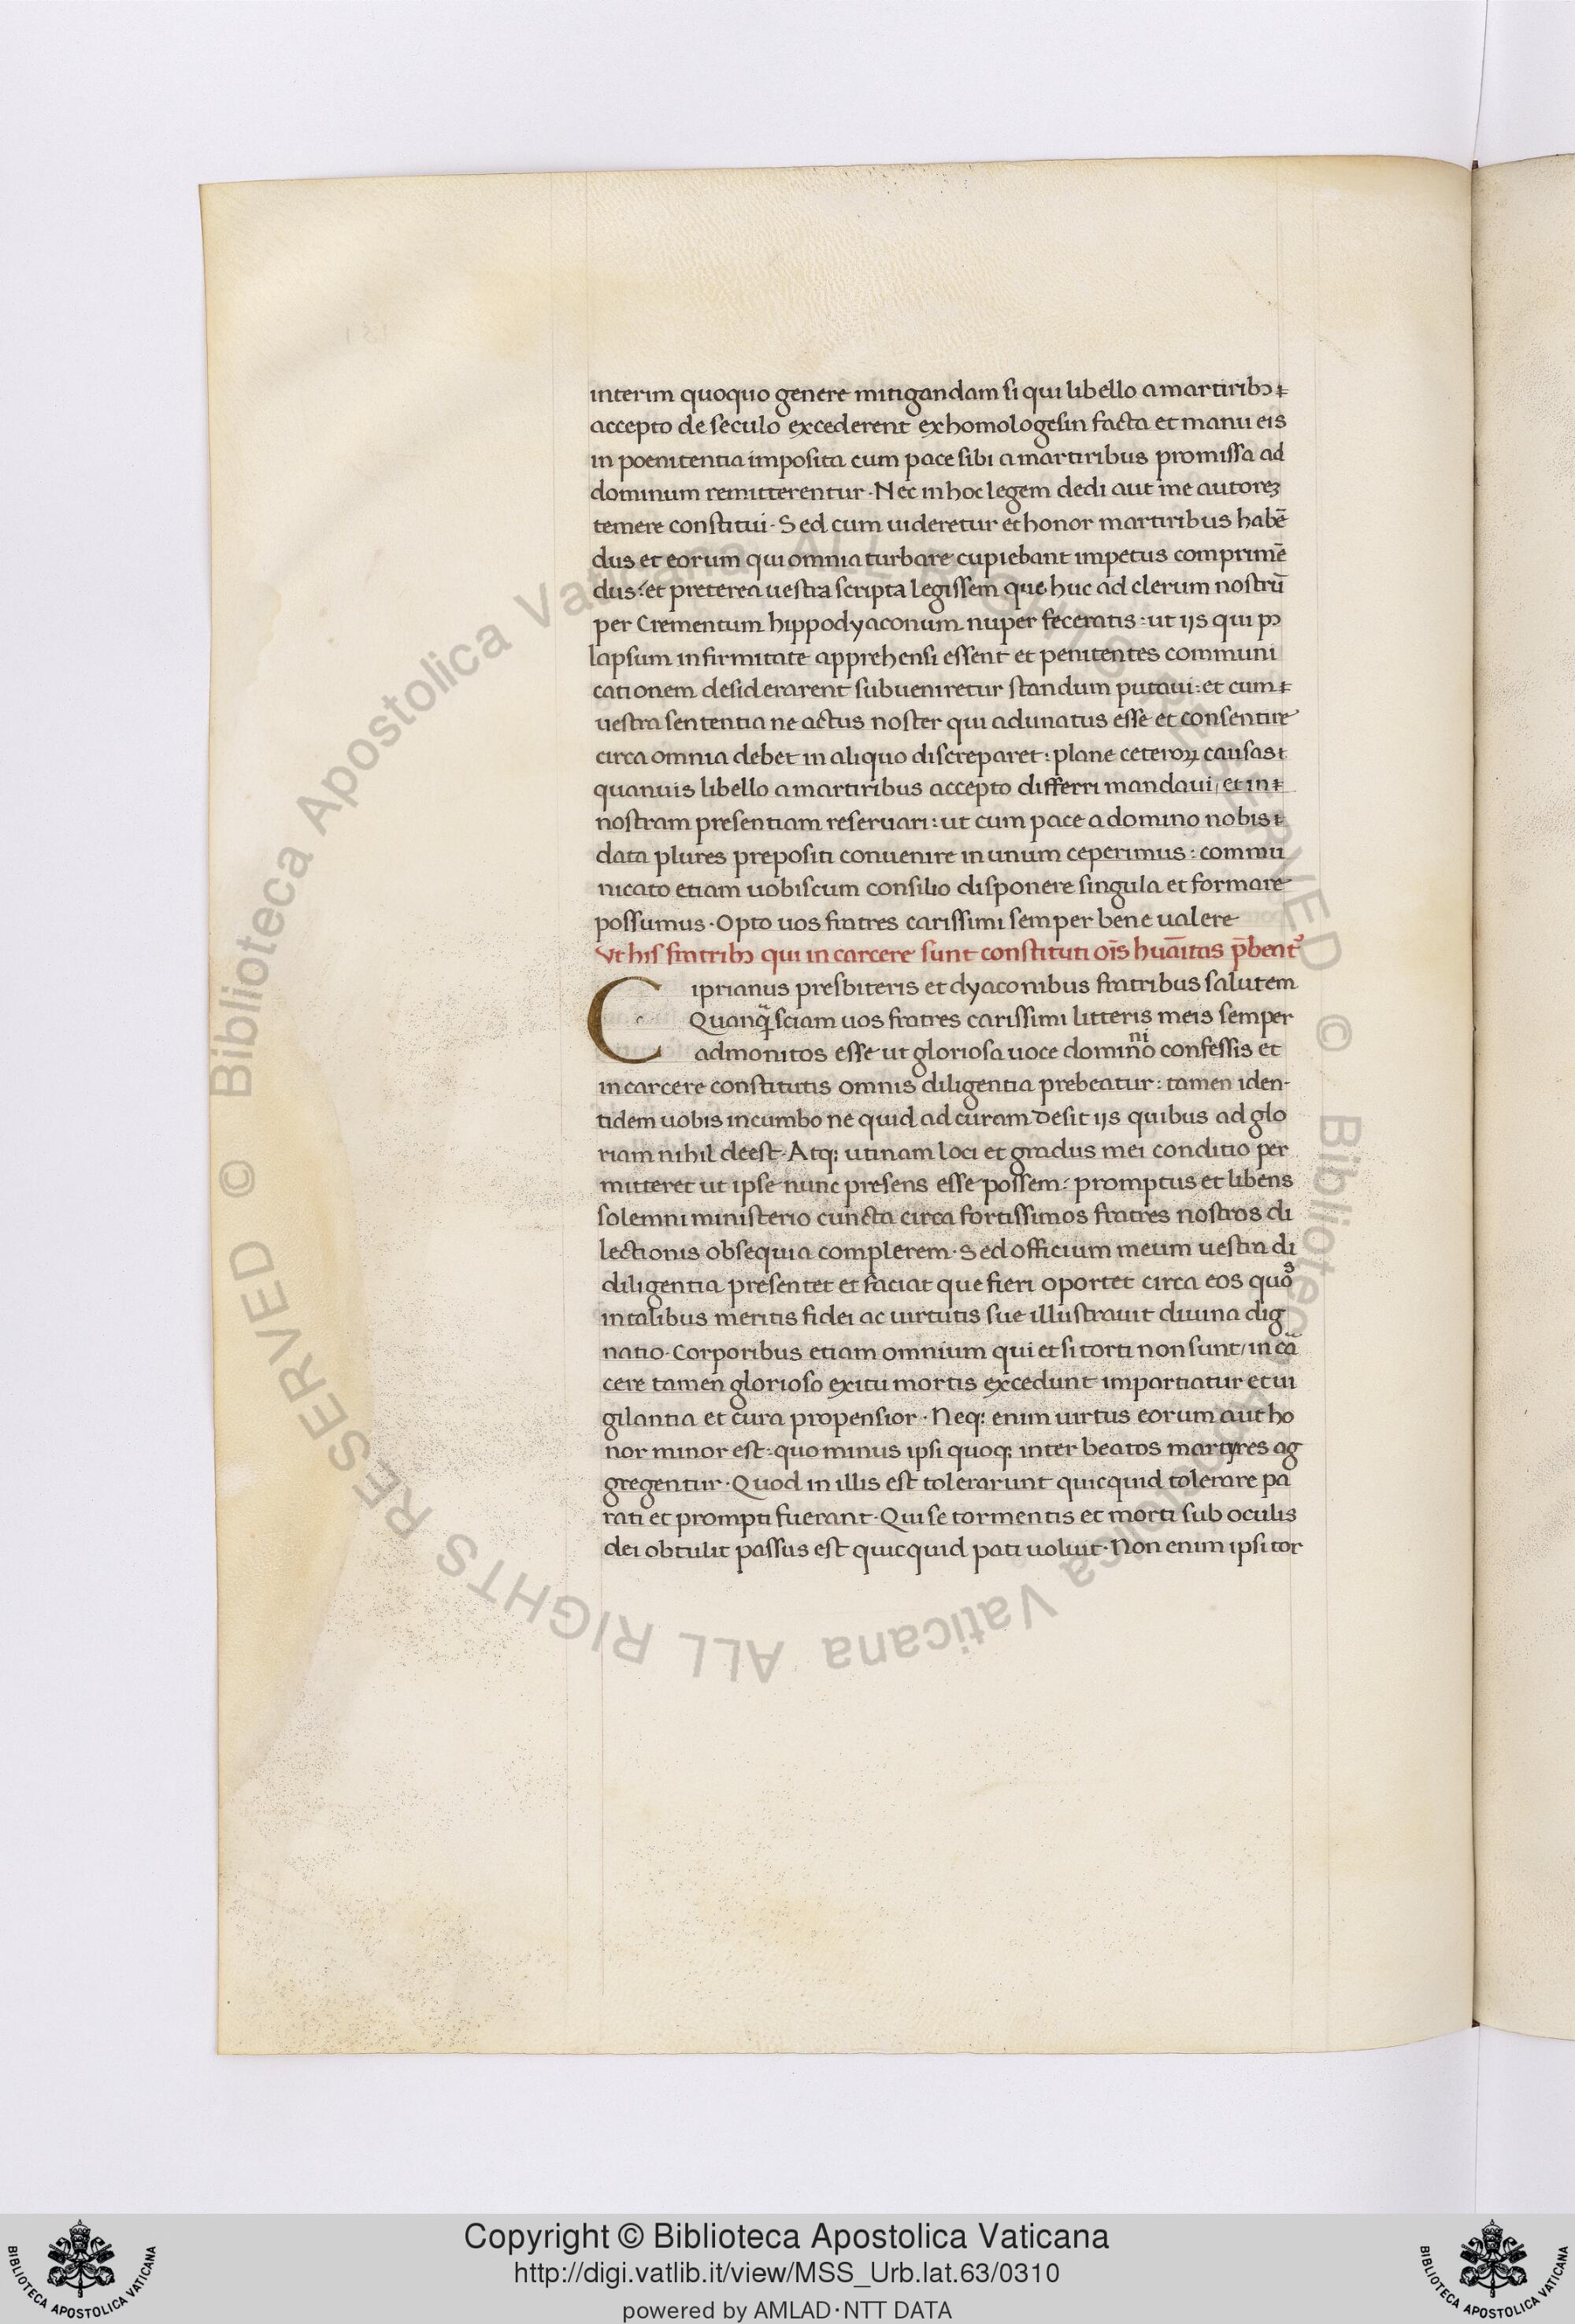 interim quoquo genere mitigandam si qui libello a martiribꝫ
accepto de seculo excederent exhomologesin facta et manu eis
in poenitentia imposita cum pace sibi a martiribus promissa ad
dominum remitterentur · Nec in hoc legem dedi aut me autoreꝫ
temere constitui · Sed cum uideretur et honor martiribus habē
dus et eorum qui omnia turbare cupiebant impetus comprimē
dus : et preterea uestra scripta legissem que huc ad clerum nostrū
per Crementum hippodyaconum nuper feceratis : ut ijs qui pꝰ
lapsum infirmitate apprehensi essent et penitentes communi
cationem desiderarent subueniretur standum putaui : et cum
uestra sententia ne actus noster qui adunatus esse et consentire
circa omnia debet in aliquo discreparet : plane ceteroꝝ causas
quanuis libello a martiribus accepto differri mandaui / et in
nostram presentiam reseruari : ut cum pace a domino nobis
data plures prepositi conuenire in unum ceperimus : commu
nicato etiam uobiscum consilio disponere singula et formare
possumus · Opto uos fratres carissimi semper bene ualere
Vt his fratribꝫ qui in carcere sunt constituti oīs huāitas p̄beat᷑
Ciprianus presbiteris et dyaconibus fratribus salutem
Quanq̄ sciam uos fratres carissimi litteris meis semper
admonitos esse ut gloriosa uoce domino ni confessis et
in carcere constitutis omnis diligentia prebeatur : tamen iden-
tidem uobis incumbo ne quid ad curam desit ijs quibus ad glo
riam nihil deest · Atq; utinam loci et gradus mei conditio per
mitteret ut ipse nunc presens esse possem : promptus et libens
solemni ministerio cuncta circa fortissimos fratres nostros di
lectionis obsequia complerem · Sed officium meum uestra di
diligentia presentet et faciat que fieri oportet circa eos quos
in talibus meritis fidei ac uirtutis sue illustrauit diuina dig
natio · Corporibus etiam omnium qui et si torti non sunt / in cā
cere tamen glorioso exitu mortis excedunt impartiatur et ui
gilantia et cura propensior · Neq; enim uirtus eorum aut ho
nor minor est : quo minus ipsi quoq; inter beatos martyres ag
gregentur · Quod in illis est tolerarunt quicquid tolerare pa
rati et prompti fuerant · Qui se tormentis et morti sub oculis
dei obtulit passus est quicquid pati uoluit · Non enim ipsi tor
© Biblioteca Apostolica Vaticana ALL RIGHTS RESERVED © Biblioteca Apostolica Vaticana ALL RIGHTS RESERVED
Copyright © Biblioteca Apostolica Vaticana
http://digi.vatlib.it/view/MSS_Urb.lat.63/0310
powered by AMLAD·NTT DATA
BIBLIOTECA APOSTOLICA VATICANA
BIBLIOTECA APOSTOLICA VATICANA